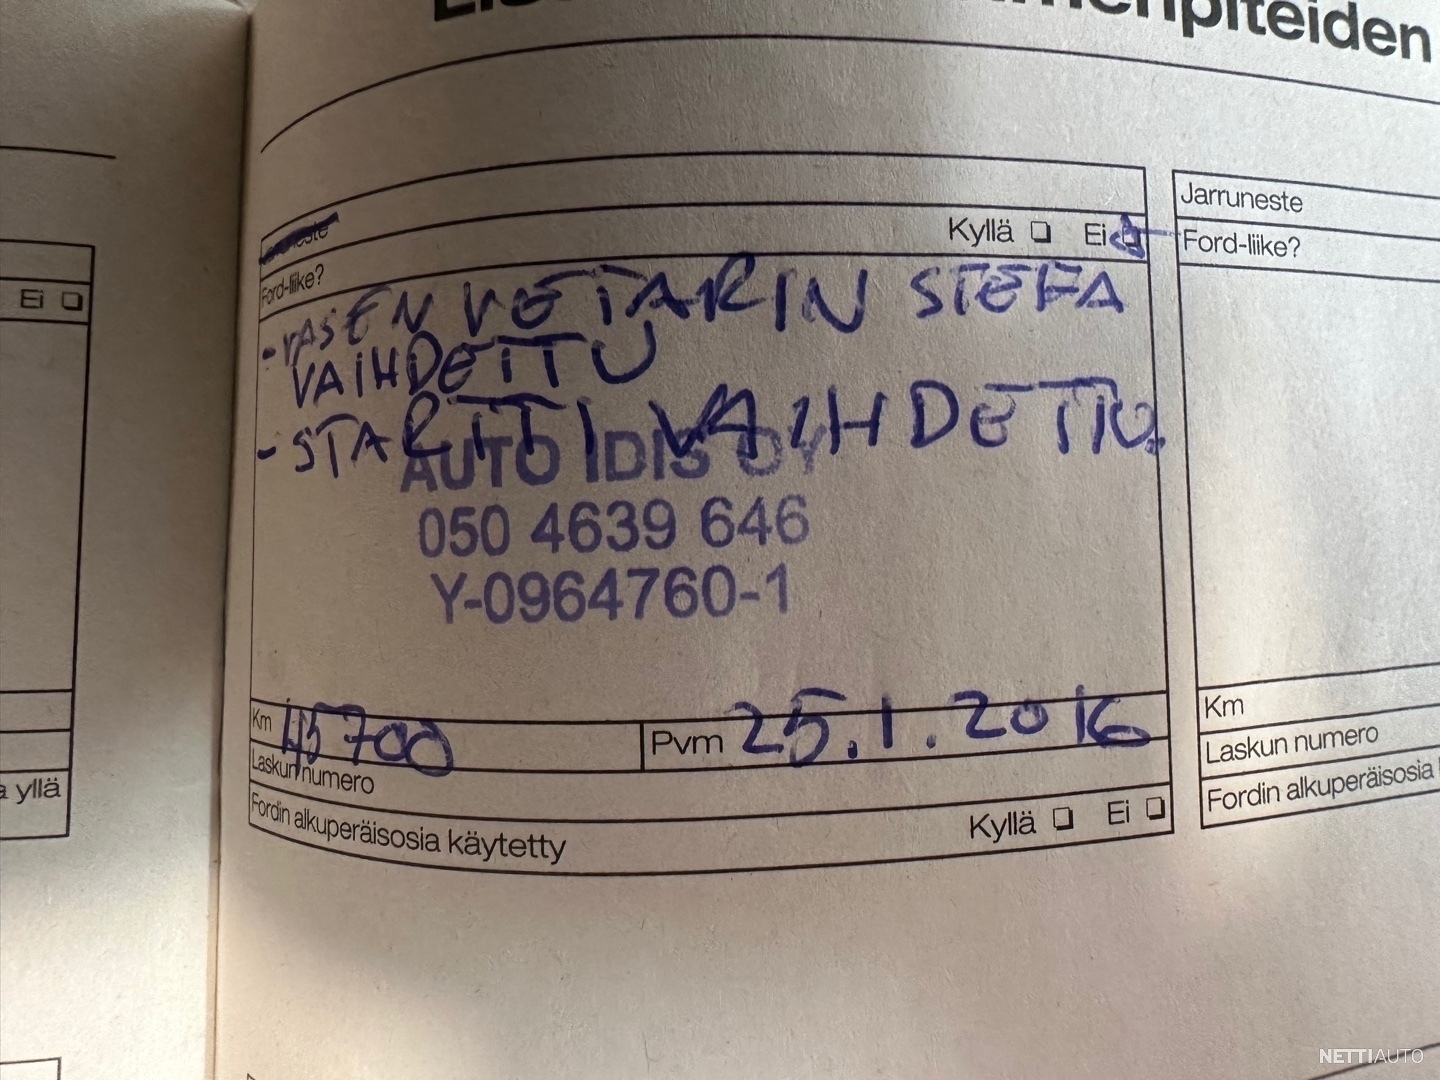 menpiteiden
Kyllä Ei
Ford-liike?
-VASEN VETARIN STEFA
VAIHDETTU
-STARTTI VAIHDETTU.
AUTO IDIS OY
050 4639 646
Y-0964760-1
Km Pvm 25.1.2016
Laskun numero
Fordin alkuperäisosia käytetty Kyllä Ei
Jarruneste
Ford-liike?
Km
Laskun numero
Fordin alkuperäisosia
Ei
yllä
NETTIAUTO